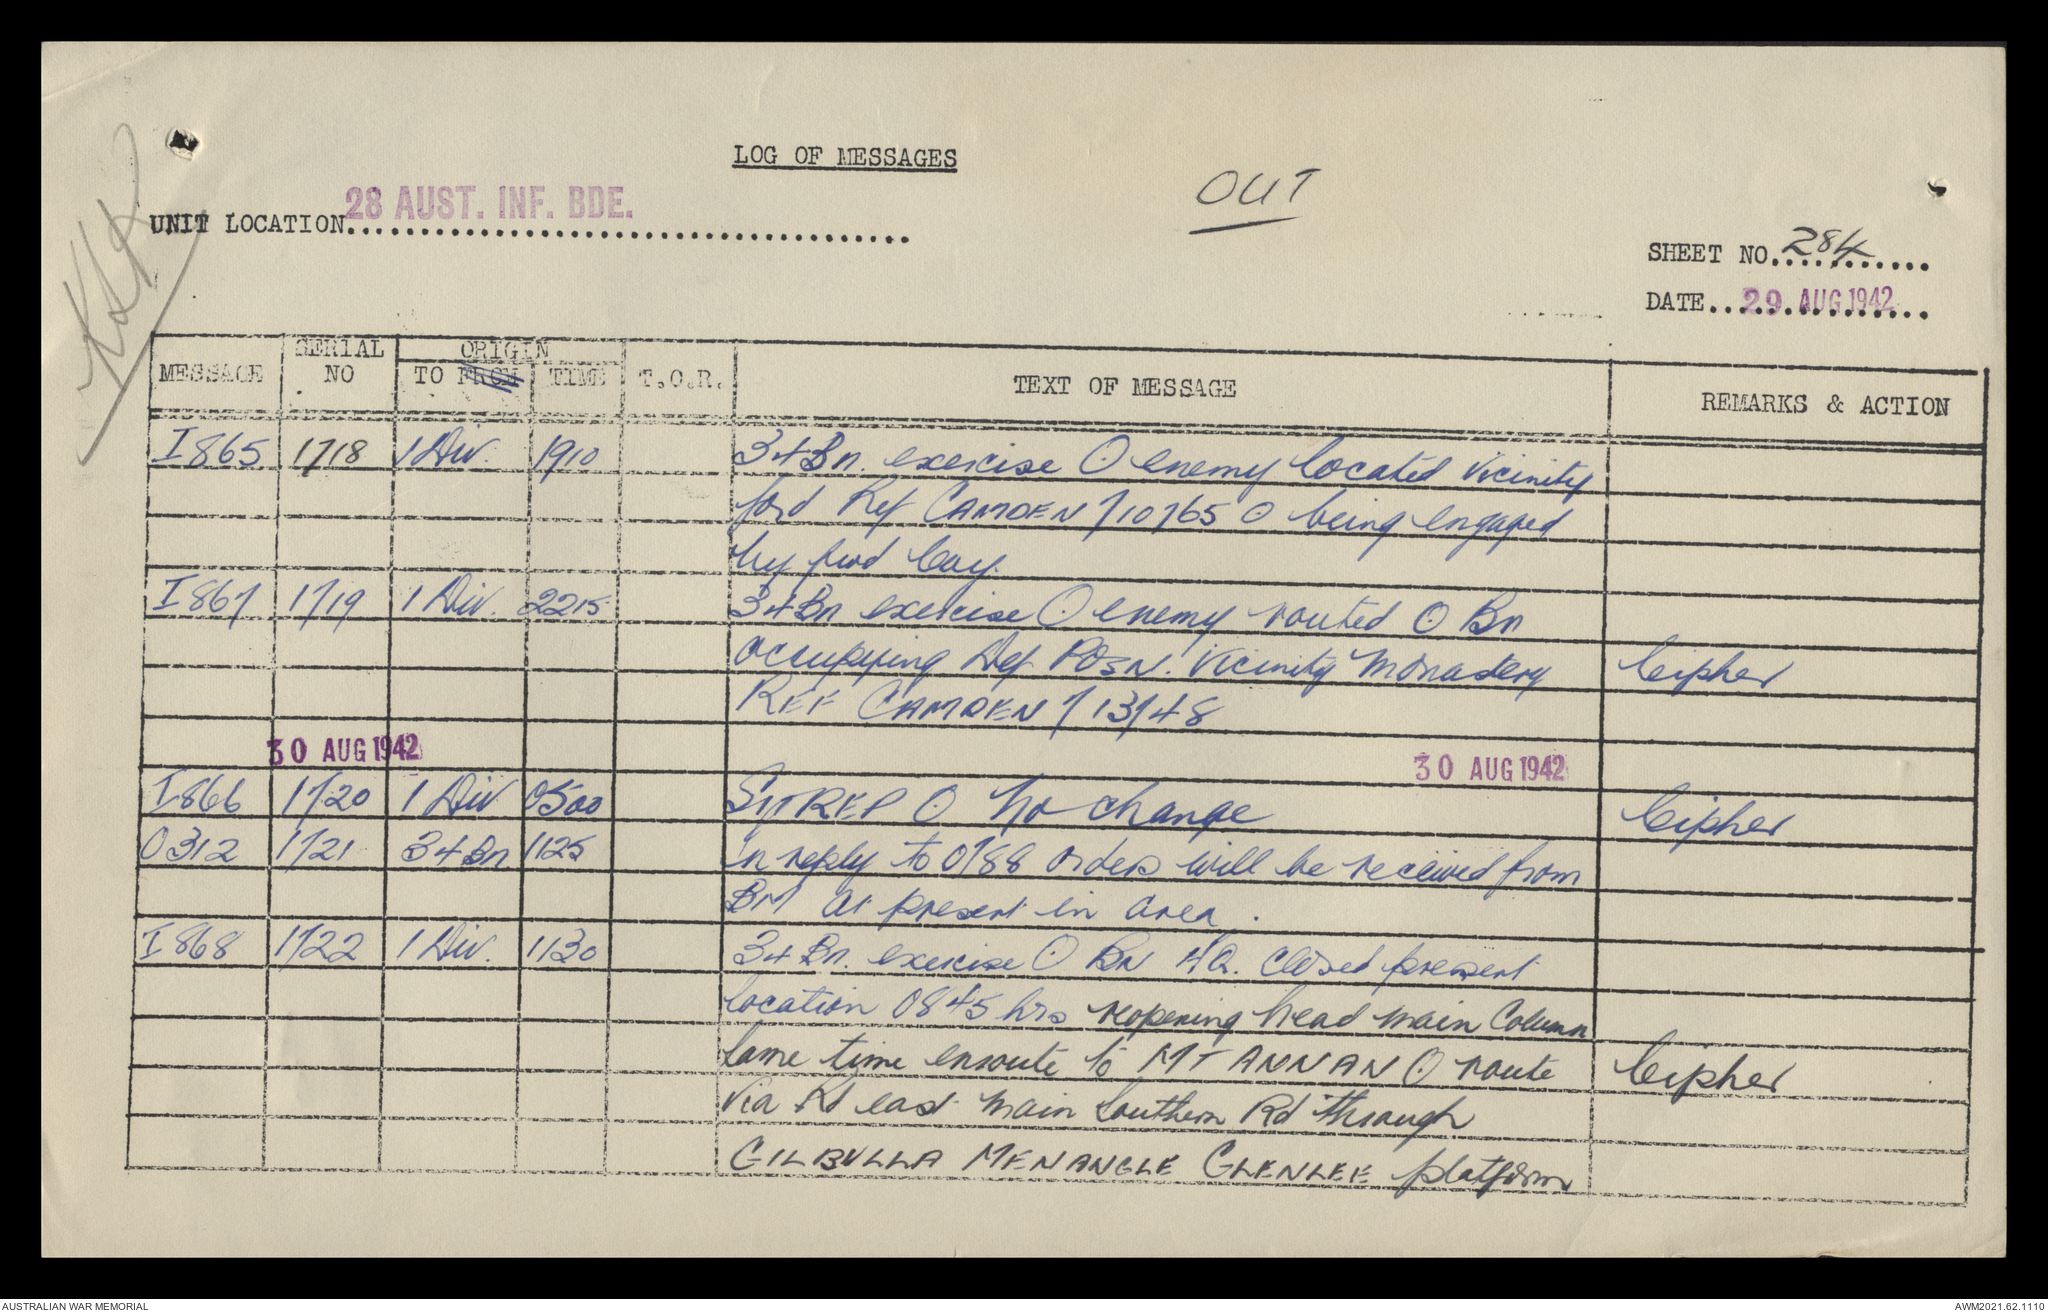 LOG OF MESSAGES
OUT
UNIT LOCATION 28 AUST. INF. BDE.
SHEET NO. 284
DATE 29 AUG 1942
MESSAGE SERIAL NO ORIGIN TO FROM TIME T.O.R. TEXT OF MESSAGE REMARKS & ACTION
I865 1718 1 Div. 1910 34 Bn. exercise O enemy located vicinity
ford Ref CAMDEN 710765 O being engaged
by fwd Coy.
I867 1719 1 Div. 2215 34 Bn exercise O enemy routed O Bn
occupying Def POSN. vicinity Monastery Cipher
REF CAMDEN 713748
30 AUG 1942 30 AUG 1942
I866 1720 1 Div 0500 SITREP O No change Cipher
O312 1721 34 Bn 1125 In reply to O788 orders will be received from
BM at present in area.
I868 1722 1 Div. 1130 34 Bn. exercise O BN HQ. closed present
location 0845 hrs reopening head main Column
same time enroute to MT ANNAN O route Cipher
via Rd east main Southern Rd through
GILBULLA MENANGLE GLENLEE platform
AUSTRALIAN WAR MEMORIAL AWM2021.62.1110